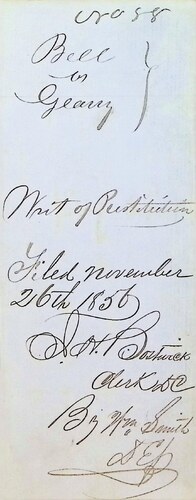 No 58
Bell
vs
Geary
Writ of Restitution
Filed November
26th 1856
J. H. Bostwick
Clerk DC
By Wm Smith